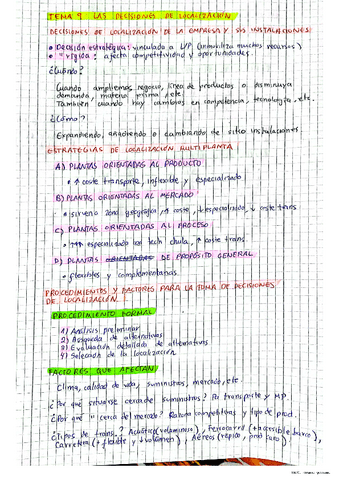 TEMA 9 LAS DECISIONES DE LOCALIZACIÓN
DECISIONES DE LOCALIZACIÓN DE LA EMPRESA Y SUS INSTALACIONES:
• Decisión estratégica: vinculado a L/P (inmoviliza muchos recursos)
• " rígida: afecta competitividad y oportunidades.
¿Cuándo?
Cuando ampliemos negocio, línea de productos o disminuya
demanda, materia prima, etc.
También cuando hay cambios en competencia, tecnología, etc.
¿Cómo?
Expandiendo, añadiendo o cambiando de sitio instalaciones.
ESTRATEGIAS DE LOCALIZACIÓN MULTIPLANTA
A) PLANTAS ORIENTADAS AL PRODUCTO
• ↑ coste transporte, inflexible y especializado
B) PLANTAS ORIENTADAS AL MERCADO
• sirven a zona geográfica, ↑ coste, ↓ especializado, ↓ coste trans
C) PLANTAS ORIENTADAS AL PROCESO
• ↑↑↑ especializado con tech chula, ↑ coste trans.
D) PLANTAS DE PROPÓSITO GENERAL
• flexibles y complementarias.
PROCEDIMIENTOS Y FACTORES PARA LA TOMA DE DECISIONES
DE LOCALIZACIÓN
PROCEDIMIENTO FORMAL
1) Análisis preliminar
2) Búsqueda de alternativas
3) Evaluación detallada de alternativas
4) Selección de la localización
FACTORES QUE AFECTAN
Clima, calidad de vida, suministros, mercado, etc.
¿Por qué situarse cerca de suministros? Por transporte y MP.
¿Por qué " cerca del mercado? Razones competitivas y tipo de prod.
¿Tipos de trans.? Acuático (voluminoso), ferrocarril (+accesible, barco),
Carretera (+flexible y ↓volúmen), Aéreos (rápido, pero caro).